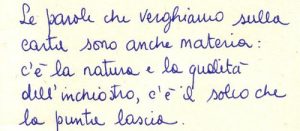 Le parole che verghiamo sulla
carta sono anche materia:
c'è la natura e la qualità
dell'inchiostro, c'è il solco che
la punta lascia.